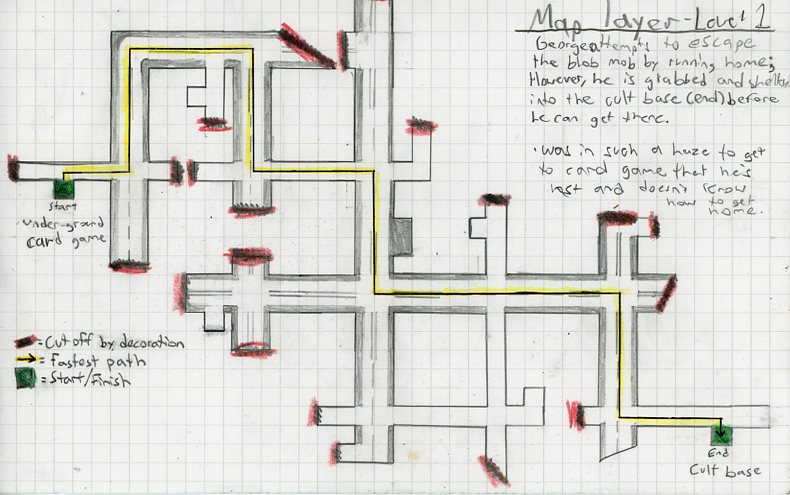 Map layer-Level 1
George attempts to escape
the blob mob by running home;
However, he is grabbed and
into the cult base (end) before
he can get there.
• Was in such a haze to get
to card game that he's
lost and doesn't know
how to get
home.
Start
under-ground
card game
= Cut off by decoration
= fastest path
= Start/Finish
End
Cult base